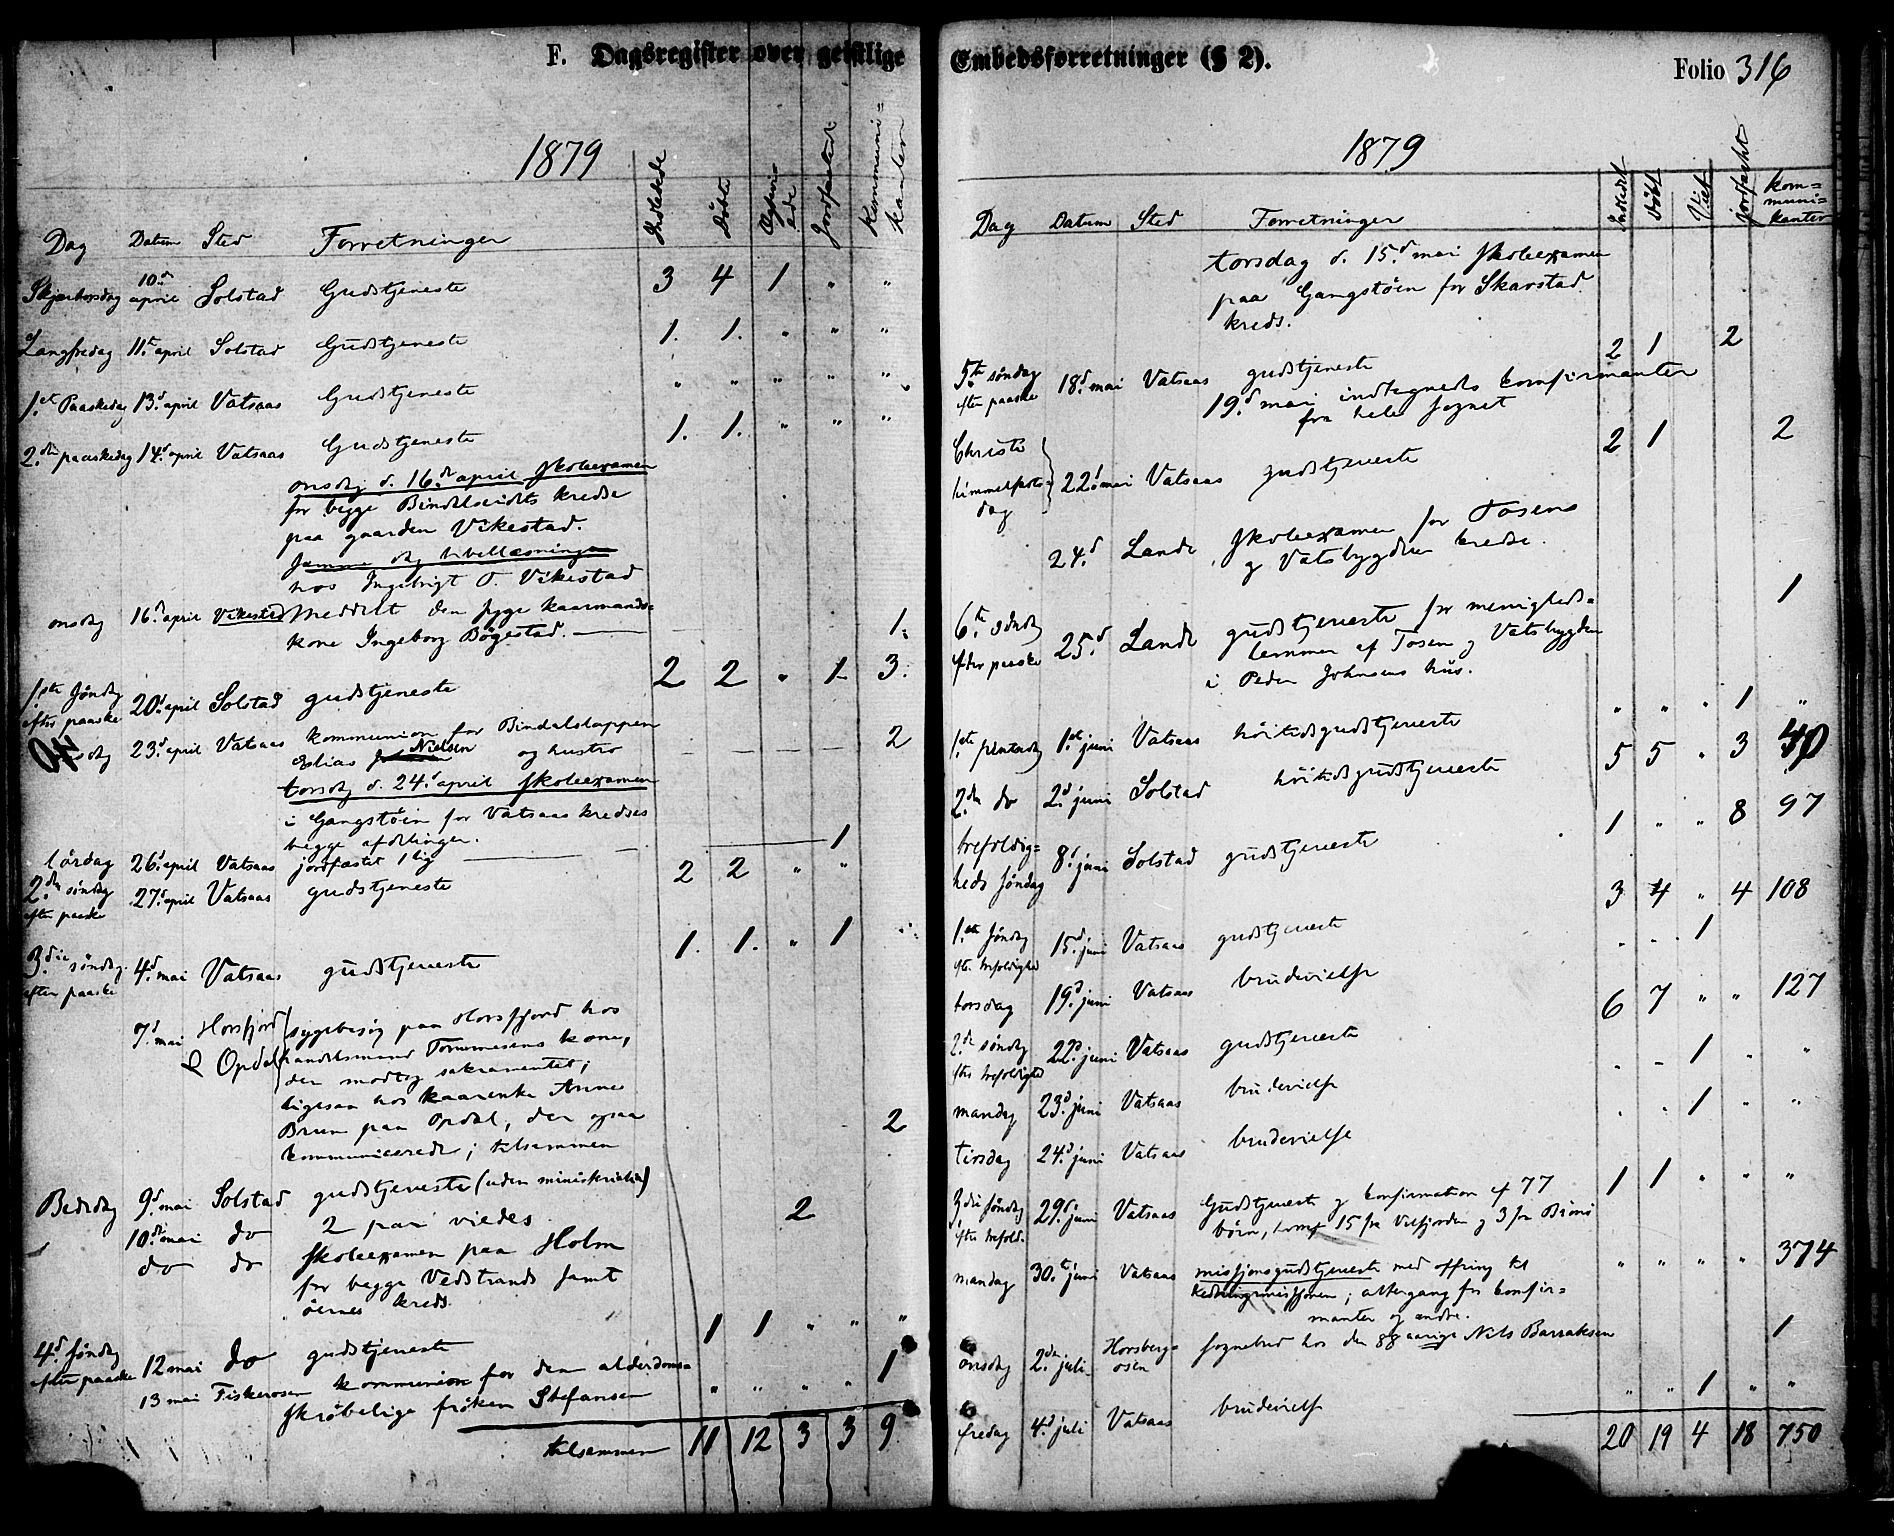 F. Dagsregister over geistlige
1879
Dag Datum Sted Forretninger Indledede Døbte Jordfæstede Kommuni=
kanter
Skjærtorsdag 10.d april Solstad Gudstjeneste 3 4 1 " "
Langfredag 11.d april Solstad Gudstjeneste 1. 1. " " "
1.ste Paaskedag 13.d april Vatsaas Gudstjeneste " " " " "
2.den paaskedag 14.d april Vatsaas Gudstjeneste 1. 1. " " "
onsdag d. 16.de april skoleexamen
for begge Bindalseidets kredse
paa gaarden Vikestad.
samme dag
hos Ingebrigt O. Vikestad
onsdag 16.d april Vikestad meddelt den syge kaarmands=
kone Ingeborg Bøgestad. 1.
1.ste søndag
efter paaske 20.d april Solstad gudstjeneste 2 2 " 1 3.
23.d april Vatsaas kommunion for Bindalslappen
Elias Nielsen og hustro 2
torsdag d. 24.d april skoleexamen
i Gangstøen for Vatsaas kredses
begge afdelinger.
lørdag 26.d april Vatsaas jordfæstet 1 lig 1
2.den søndag
efter paaske 27.d april Vatsaas gudstjeneste 2 2 " "
3.die søndag
efter paaske 4.d mai Vatsaas gudstjeneste 1. 1. " 1
7.d mai Horsfjord sygebesøg paa Horsfjord hos
& Opdal handelsmand Tommesens kone,
der modtog sakramentet;
ligesaa hos kaarenke Anne
Brun paa Opdal, der ogsaa
kommunicerede; tilsammen 2
Bededag 9.d mai Solstad gudstjeneste (uden ministerialia)
10.de mai do 2 par viedes 2
do do skoleexamen paa Holm
for begge Vedstrands samt
øernes kreds.
4.d søndag
efter paaske 12 mai do gudstjeneste 1 1 " " "
13 mai Fiskerosen kommunion for den alderdoms=
skrøbelige frøken Stefansen " " " " 1
tilsammen 11 12 3 3 9
Embedsforretninger (§ 2).
Folio 316
1879
Dag Datum Sted Forretninger Indledt Døbt Viet jordfæstet kom=
muni=
kanter
torsdag d. 15.d mai skoleexamen
paa Gangstøen for Skarstad
kreds.
5.te søndag
efter paaske 18.d mai Vatsaas gudstjeneste 2 1 2
19.d mai indtegnedes konfirmanter
fra hele sognet
Christi
himmelfarts=
dag 22.d mai Vatsaas gudstjeneste 2 1 2
24.d Lande skoleexamen for Tosens
og Vatsbygdens kredse.
6.te søndag
efter paaske 25.d Lande gudstjeneste for menigheds= 1
lemmer af Tosen og Vatsbygden
i Peder Johnsens hus.
1.ste pintsedag 1.ste juni Vatsaas høitidsgudstjeneste " " " 1 "
2.den do 2.d juni Solstad høitidsgudstjeneste 5 5 " 3 40
trefoldig=
heds søndag 8.d juni Solstad gudstjeneste 1 " " 8 97
1.ste søndag
eft. trefoldighed 15.d juni Vatsaas gudstjeneste 3 4 " 4 108
torsdag 19.d juni Vatsaas brudevielse " " 1
2.den søndag
efter trefoldighed 22.d juni Vatsaas gudstjeneste 6 7 " " 127
mandag 23.d juni Vatsaas brudevielse " " 1 " "
tirsdag 24.d juni Vatsaas brudevielse " " 1 " "
3.die søndag
efter trefold. 29.d juni Vatsaas Gudstjeneste og konfirmation af 77 1 1 " " "
børn, hvoraf 15 fra Velfjorden og 3 fra Brønø
mandag 30.te juni Vatsaas missjonsgudstjeneste med offring til " " " " 374
hedningemissjonen; altergang for konfir=
manter og andre.
onsdag 2.den juli Horsberg=
osen sognebud hos den 88 aarige Nils Barraksen 1
fredag 4.d juli Vatsaas brudevielse " " 1 " "
20 19 4 18 750